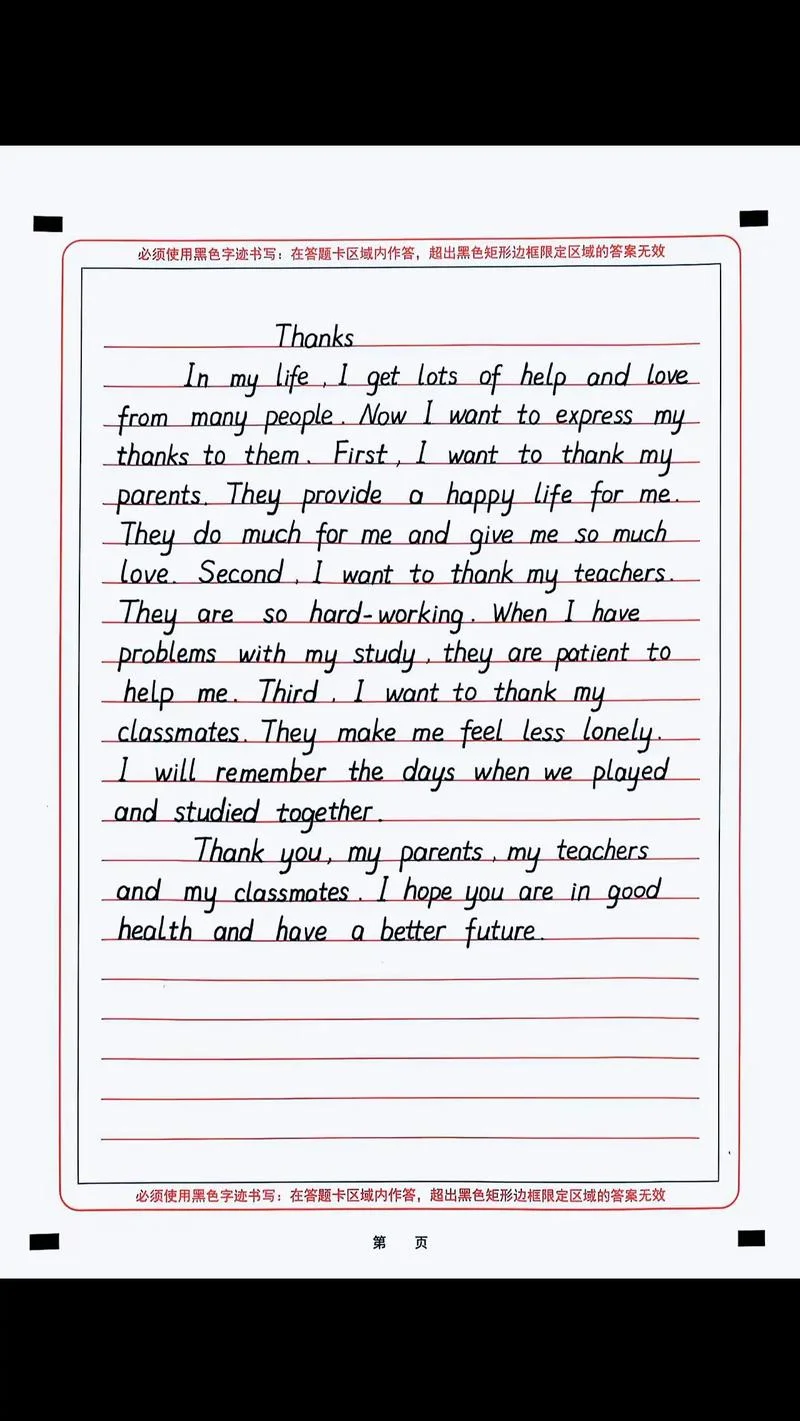 必须使用黑色字迹书写：在答题卡区域内作答，超出黑色矩形边框限定区域的答案无效
Thanks
In my life, I get lots of help and love
from many people. Now I want to express my
thanks to them. First, I want to thank my
parents. They provide a happy life for me.
They do much for me and give me so much
love. Second, I want to thank my teachers.
They are so hard-working. When I have
problems with my study, they are patient to
help me. Third, I want to thank my
classmates. They make me feel less lonely.
I will remember the days when we played
and studied together.
Thank you, my parents, my teachers
and my classmates. I hope you are in good
health and have a better future.
必须使用黑色字迹书写：在答题卡区域内作答，超出黑色矩形边框限定区域的答案无效
第 页